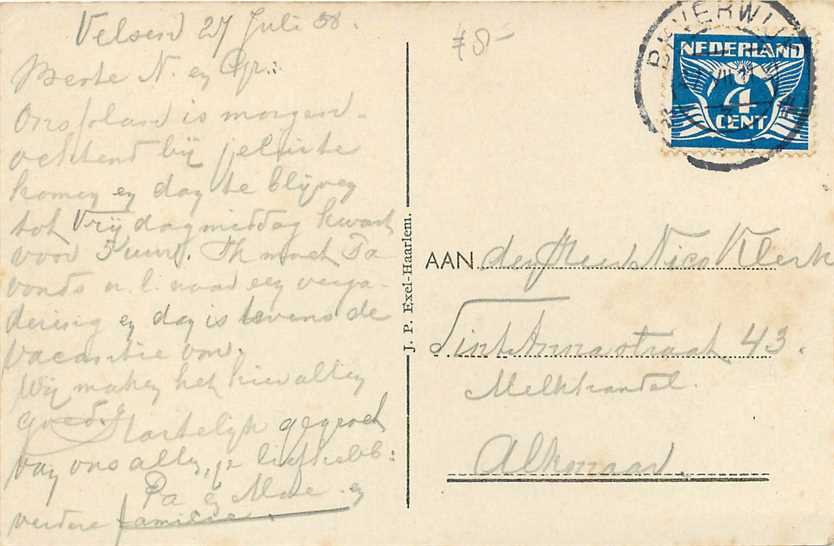 Velsen 27 Juli 38.
Beste N. en Gr.:
Ons plan is morgen-
ochtend bij jelui te
komen en dan te blijven
tot Vrijdagmiddag kwart
voor 5 uur. Ik moet Za
vonds n.l. naar een verga-
dering en dan is tevens de
vacantie om.
Wij maken het hier allen
goed.
Hartelijk gegroet
van ons allen, je liefhebb:
Pa en Moe en
verdere familie.
ƒ8-
BEVERWIJK
NEDERLAND
4
CENT
J. P. Exel-Haarlem.
AAN den Heer Nico Klerk
Sint Annastraat 43.
Melkhandel.
Alkmaar.